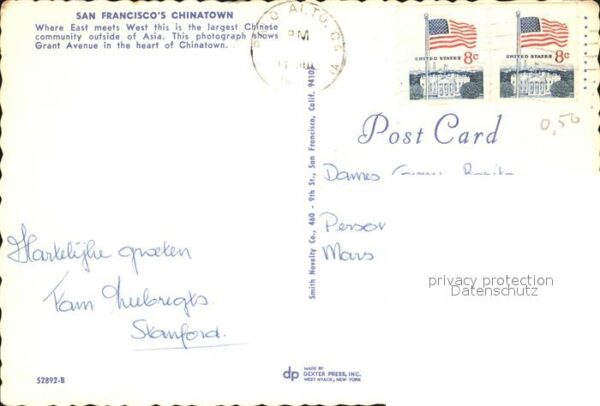 SAN FRANCISCO'S CHINATOWN
Where East meets West this is the largest Chinese
community outside of Asia. This photograph shows
Grant Avenue in the heart of Chinatown.
PALO ALTO, CA
PM
UNITED STATES 8c
UNITED STATES 8c
0,50
Post Card
Dames
Person
Mars
privacy protection
Datenschutz
Smith Novelty Co., 460 - 9th St., San Francisco, Calif. 94103
Hartelijke groeten
Fam Huibregts
Stanford.
52892-B
dp MADE BY
DEXTER PRESS, INC.
WEST NYACK, NEW YORK